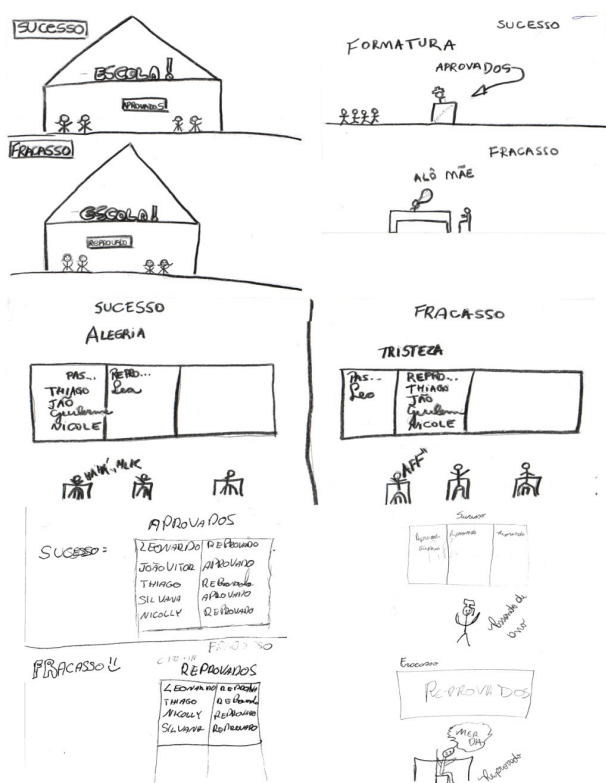 SUCESSO
ESCOLA!
APROVADOS
FRACASSO
ESCOLA!
REPROVADO
SUCESSO
FORMATURA
APROVADOS
FRACASSO
ALÔ MÃE
SUCESSO
ALEGRIA
PAS... REPRO...
THIAGO Leo
JÃO
Guilherme
NICOLE
FRACASSO
TRISTEZA
PAS... REPRO...
Leo THIAGO
JÃO
Guilherme
NICOLE
"AFF"
APROVADOS
SUCESSO=
LEONARDO REPROVADO
JOÃO VITOR APROVADO
THIAGO REPROVADO
SILVANA APROVADO
NICOLLY REPROVADO
FRACASSO
FRACASSO!!
REPROVADOS
LEONARDO REPROVADO
THIAGO REPROVADO
NICOLLY REPROVADO
SILVANA REPROVADO
Sucesso
Fracasso
REPROVADOS
MER
DA
Reprovado